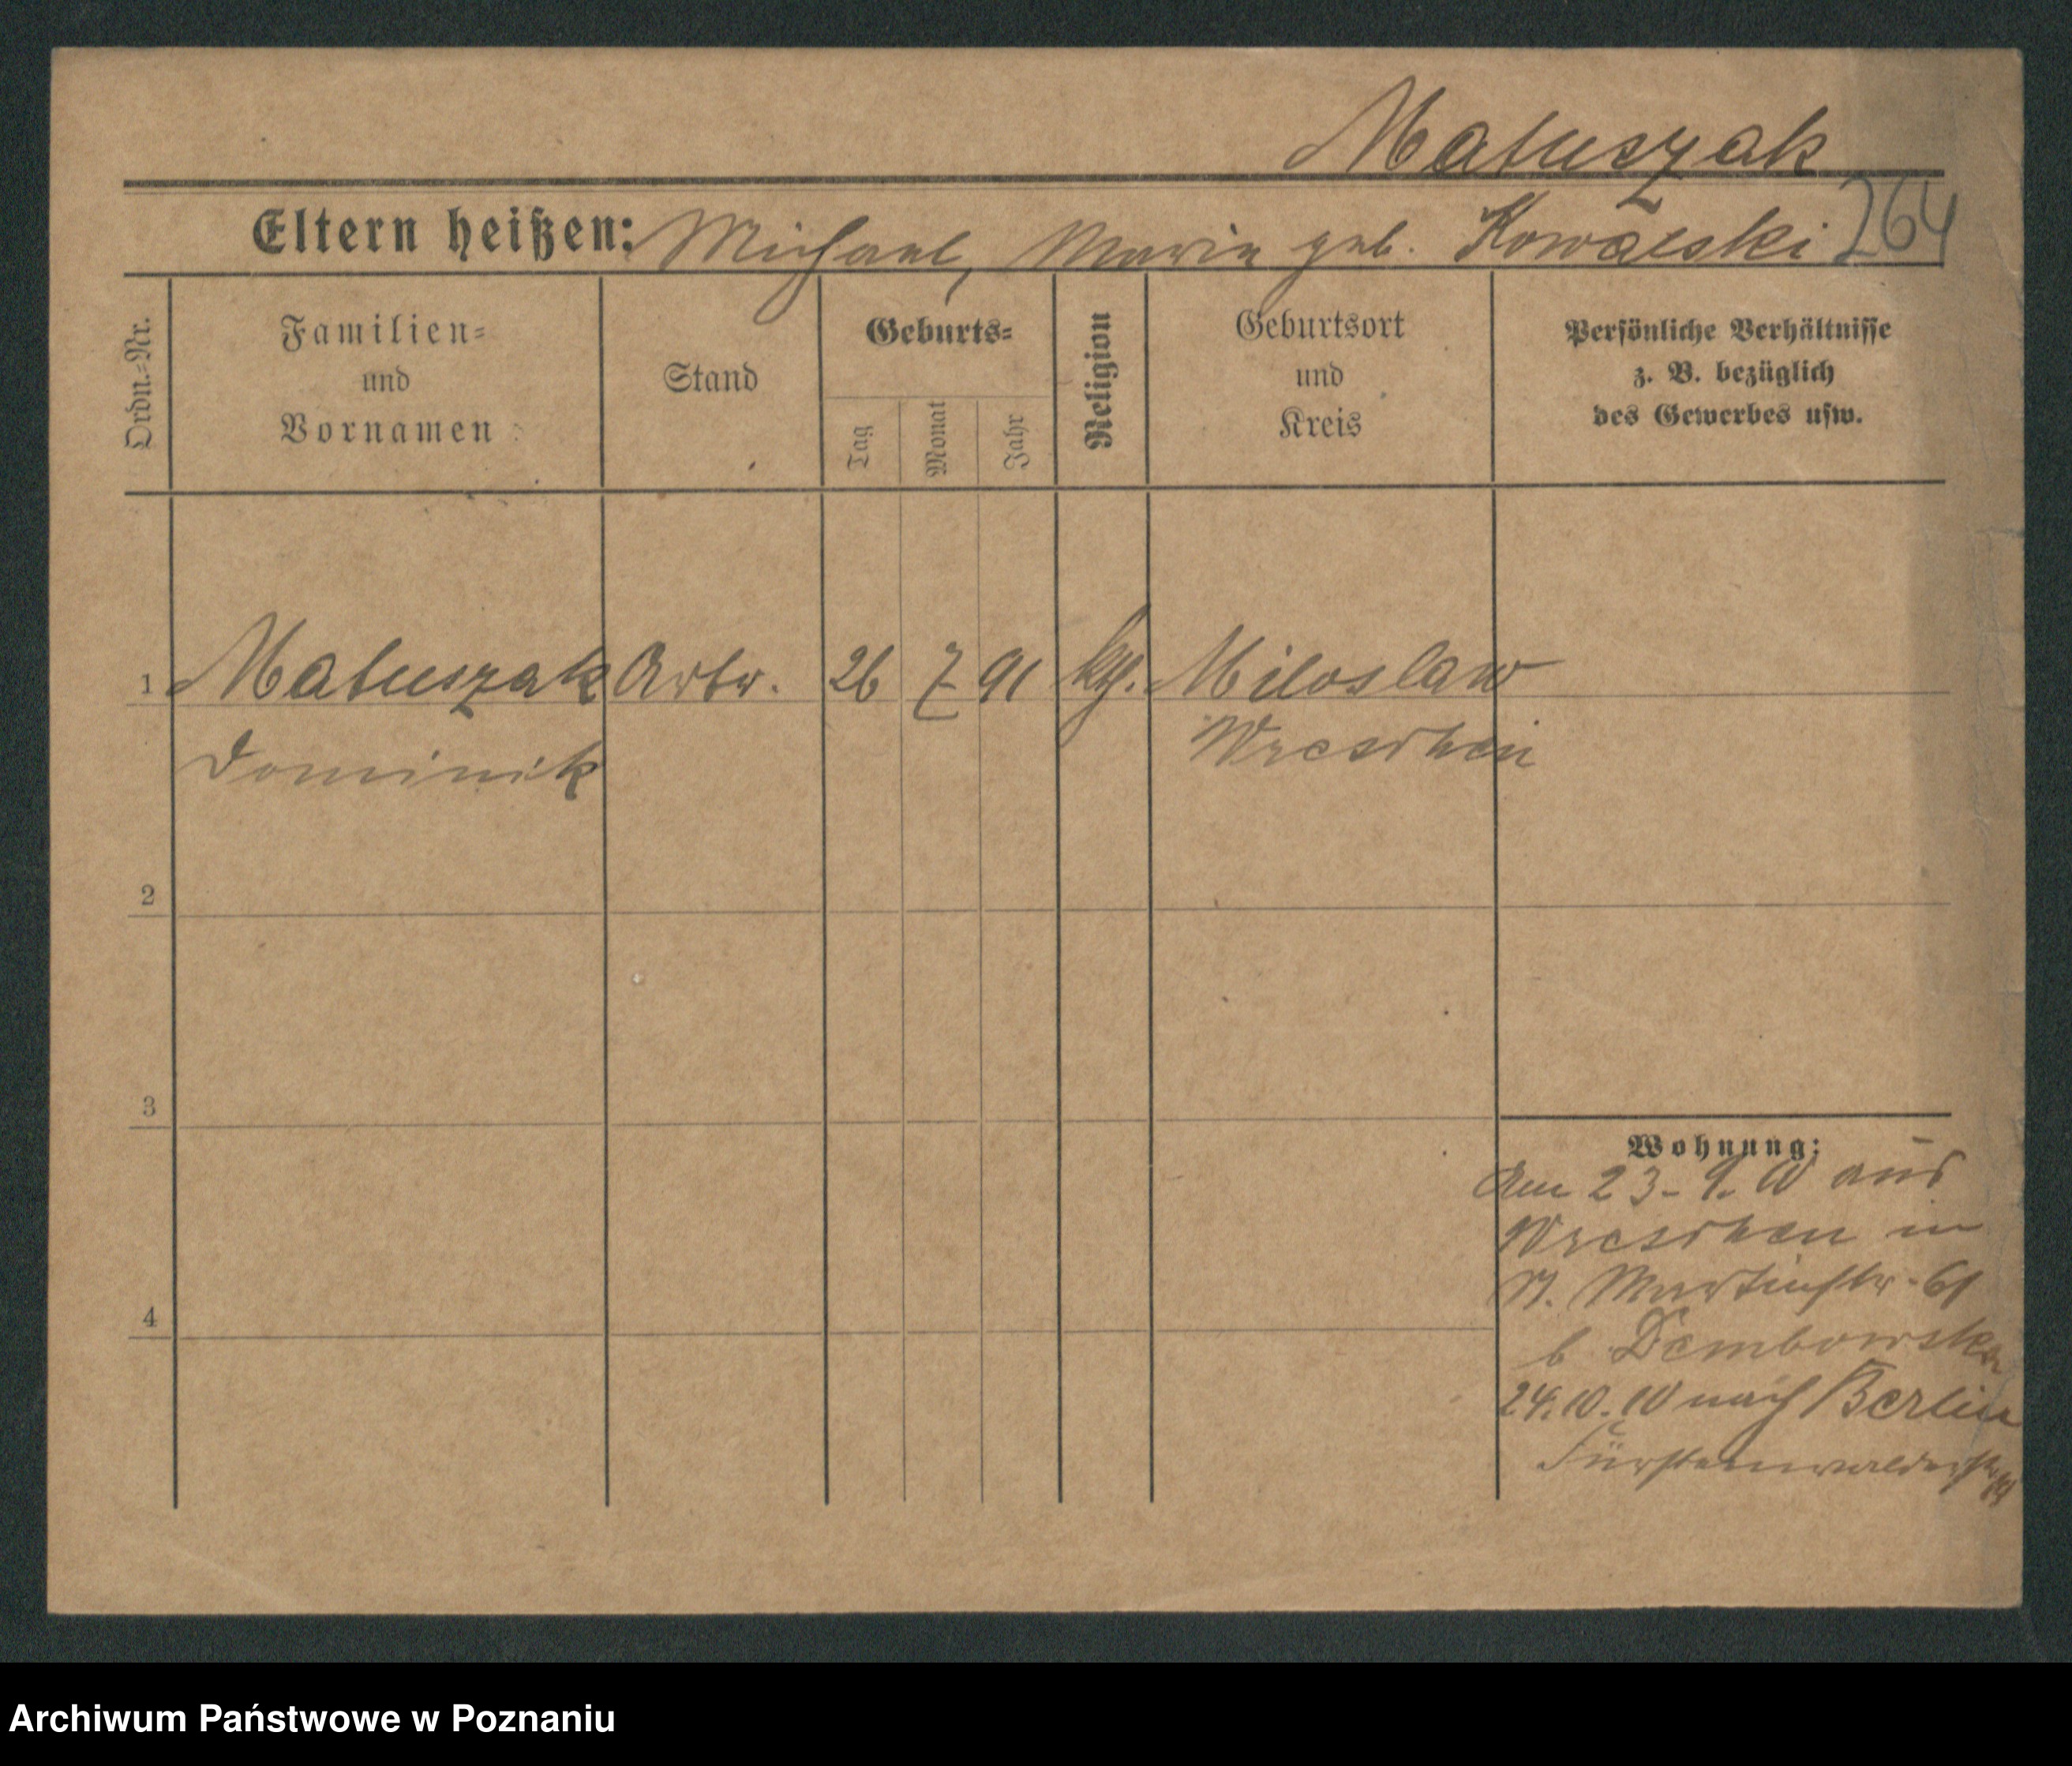 Matuszak
Eltern heißen: Michael, Maria geb. Kowalski 264
Ordn.=Nr.
Familien=
und
Vornamen
Stand
Geburts=
Tag
Monat
Jahr
Religion
Geburtsort
und
Kreis
Persönliche Verhältnisse
z. B. bezüglich
des Gewerbes usw.
1 Matuszak Arbr. 26 7 91 kth. Miloslaw
Dominik Wreschen
2
3
4
Wohnung:
Am 23.9.10 aus
Wreschen in
St. Martinstr. 61
b Dembowska
24.10.10 nach Berlin
Fürstenwalderstr.
Archiwum Państwowe w Poznaniu